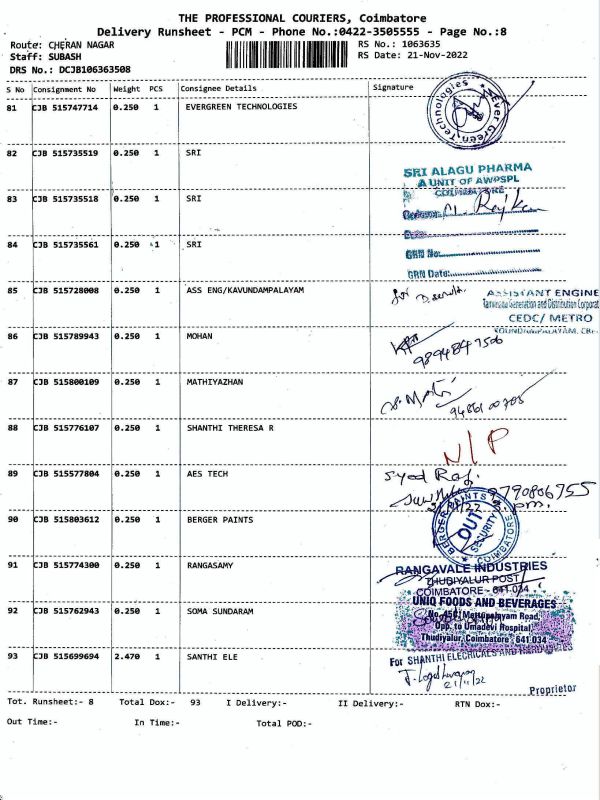 THE PROFESSIONAL COURIERS, Coimbatore
Delivery Runsheet - PCM - Phone No.:0422-3505555 - Page No.:8
Route: CHERAN NAGAR RS No.: 1063635
Staff: SUBASH RS Date: 21-Nov-2022
DRS No.: DCJB106363508
S No Consignment No Weight PCS Consignee Details Signature
81 CJB 515747714 0.250 1 EVERGREEN TECHNOLOGIES
Ever Green Technologies
82 CJB 515735519 0.250 1 SRI
SRI ALAGU PHARMA
A UNIT OF AWPSPL
COIMBATORE
83 CJB 515735518 0.250 1 SRI
Date:
84 CJB 515735561 0.250 1 SRI
GRN No:
GRN Date:
85 CJB 515728008 0.250 1 ASS ENG/KAVUNDAMPALAYAM
for
ASSISTANT ENGINE
Generation and Distribution Corporat
CEDC/ METRO
86 CJB 515789943 0.250 1 MOHAN
9894847506
87 CJB 515800109 0.250 1 MATHIYAZHAN
88 CJB 515776107 0.250 1 SHANTHI THERESA R
N/P
89 CJB 515577804 0.250 1 AES TECH
Syed Raj.
9790806755
90 CJB 515803612 0.250 1 BERGER PAINTS
BERGER PAINTS
OUT
SECURITY
COIMBATORE
91 CJB 515774300 0.250 1 RANGASAMY
RANGAVALE INDUSTRIES
THUDIYALUR POST
COIMBATORE - 641 034
92 CJB 515762943 0.250 1 SOMA SUNDARAM
UNIQ FOODS AND BEVERAGES
Mettupalayam Road,
Opp. to Umadevi Hospital,
Thudiyalur, Coimbatore - 641 034
93 CJB 515699694 2.470 1 SANTHI ELE
For SHANTHI ELECRICALS AND HARDWARES
21/11/22
Proprietor
Tot. Runsheet:- 8 Total Dox:- 93 I Delivery:- II Delivery:- RTN Dox:-
Out Time:- In Time:- Total POD:-